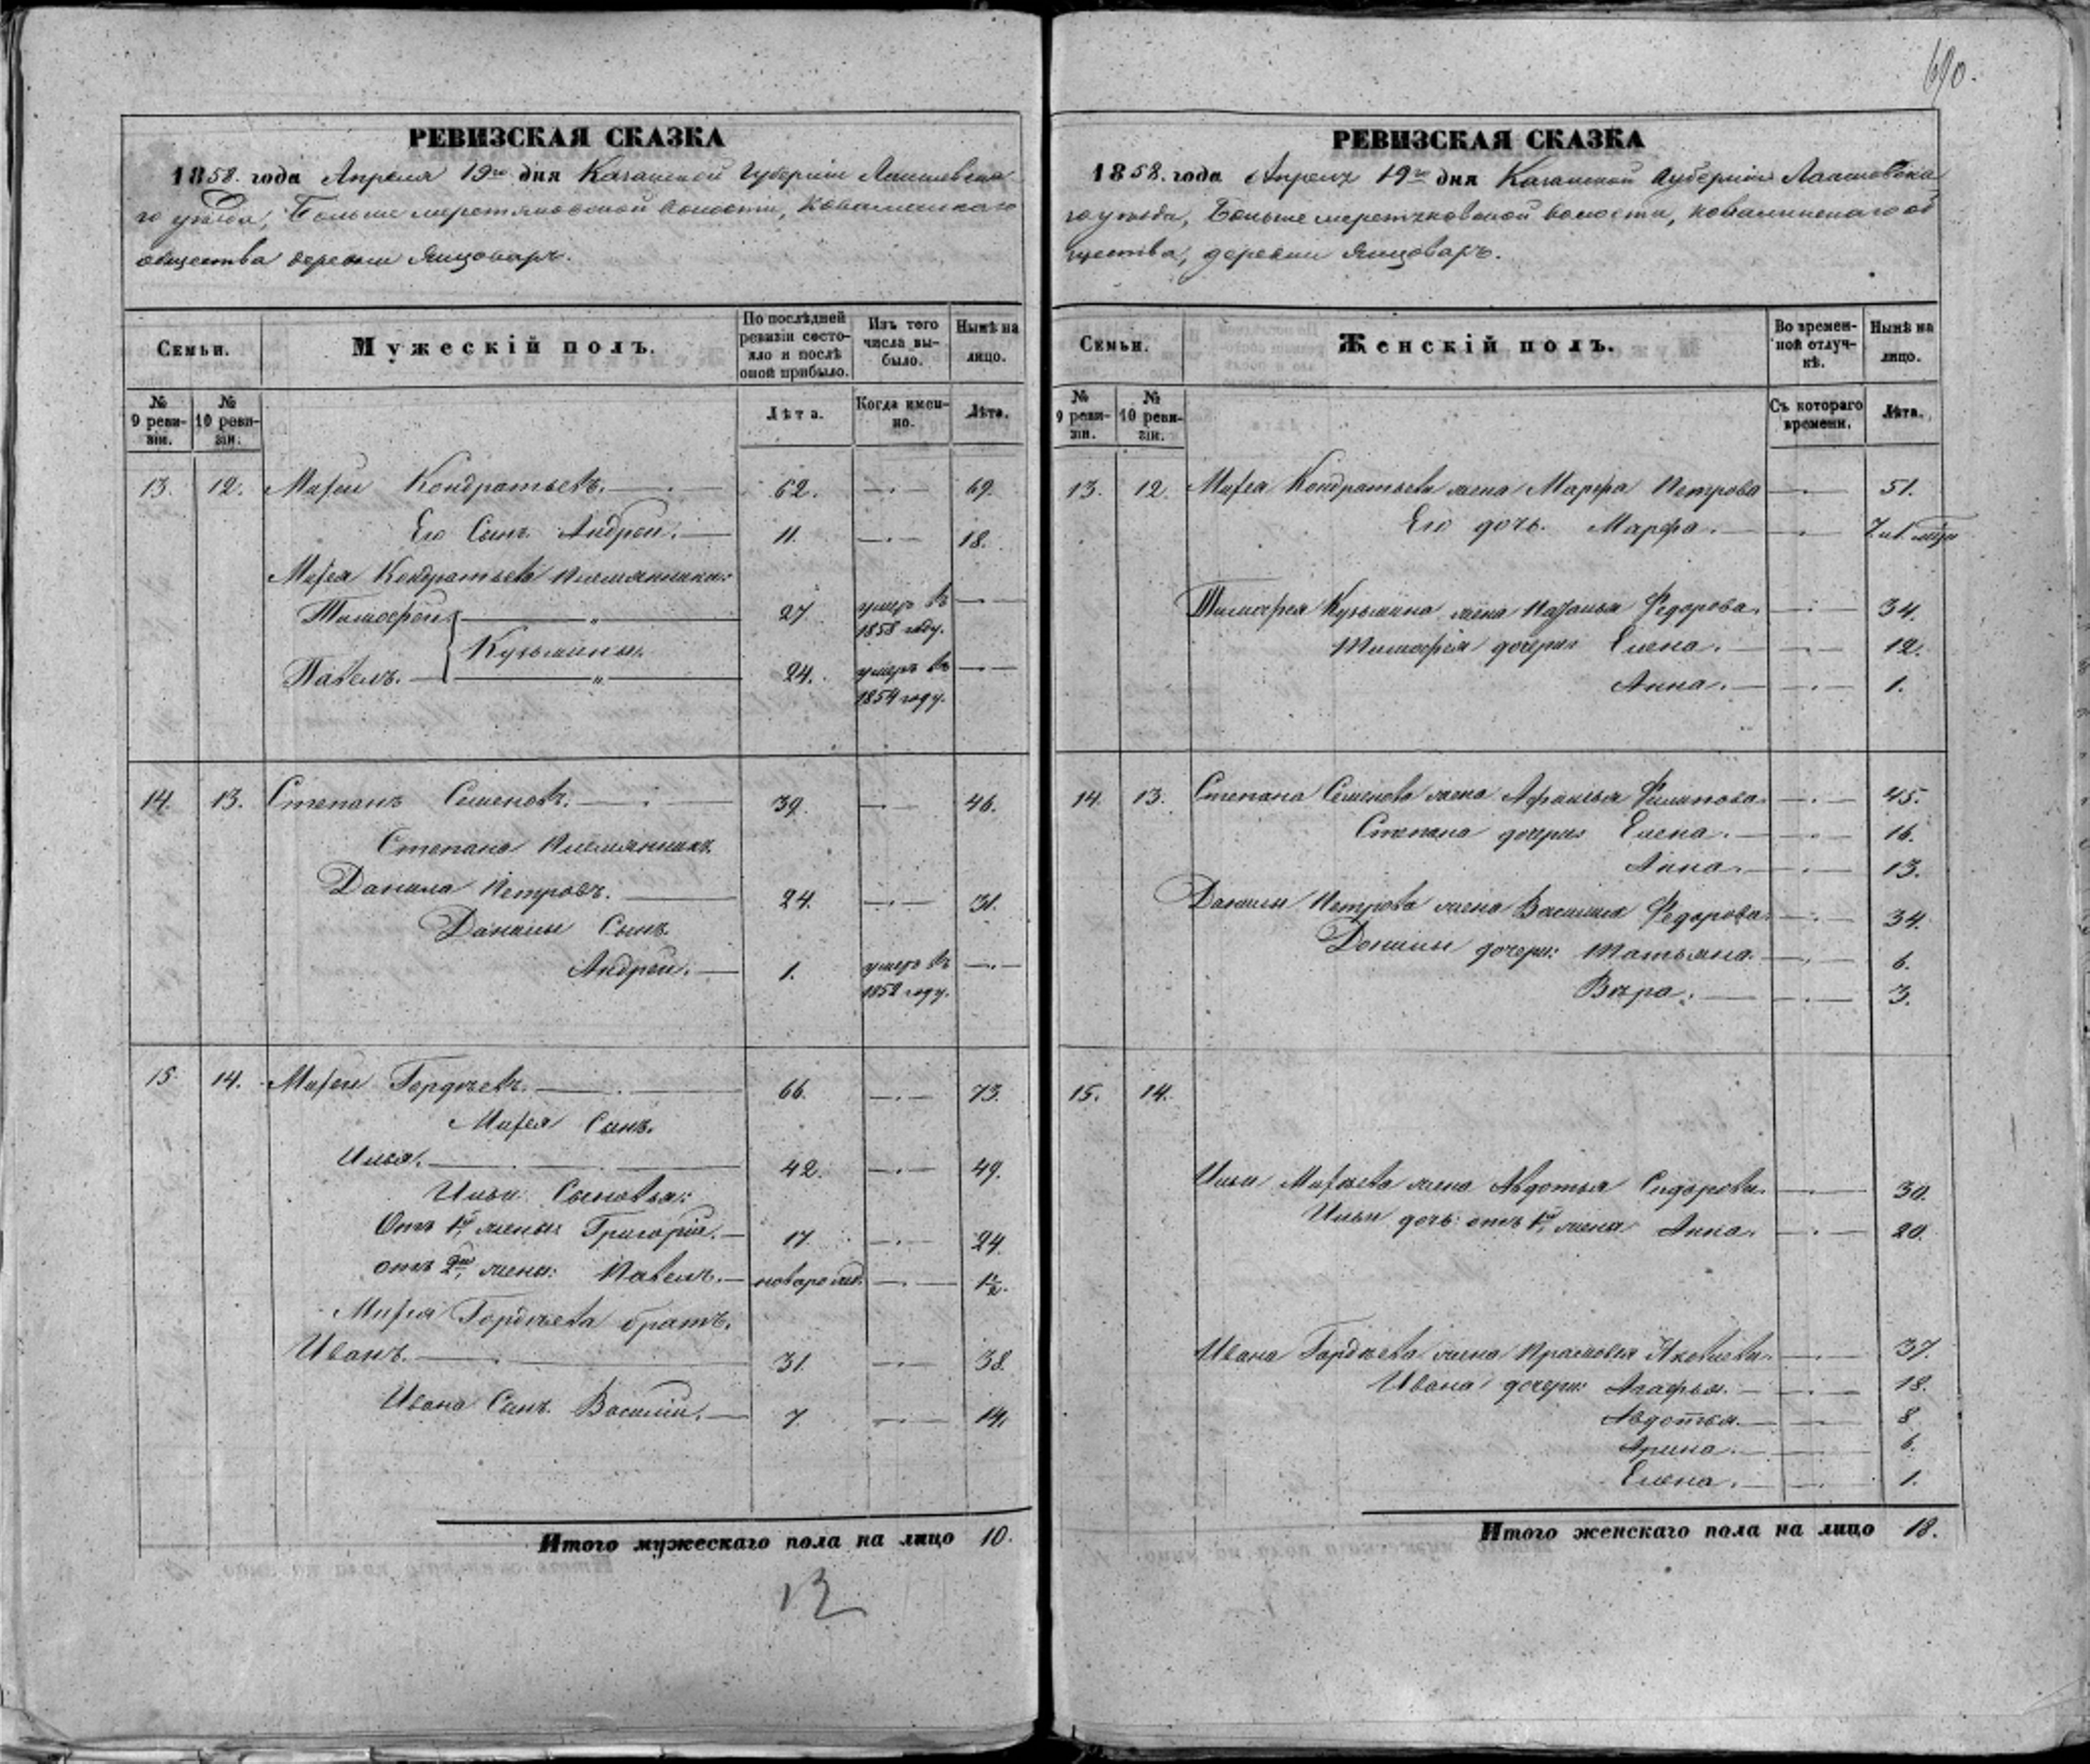 690.
РЕВИЗСКАЯ СКАЗКА
1858. года Апреля 19го дня Казанской Губерніи Лаишевска
го уѣзда, Больше меретяковской волости, Ковалинскаго
общества деревни Янцоваръ.
Семьи.
Мужескій полъ.
По послѣдней ревизіи состояло и послѣ оной прибыло.
Изъ того числа выбыло.
Нынѣ на лицо.
№ 9 ревизіи.
№ 10 ревизіи.
Лѣта.
Когда именно.
Лѣта.
13. 12. Кондратьевъ. 62. 69.
Его Сынъ Андрей. 11. 18.
Кондратьева племянники:
Тимофей 27 умеръ въ 1858 году.
Кузьмины.
Павелъ. 24. умеръ въ 1854 году.
14. 13. Степанъ Семеновъ. 39. 46.
Степана племянникъ
Данила Петровъ. 24. 31.
Данилы Сынъ
Андрей. 1. умеръ въ 1852 году.
15 14. Гордѣевъ. 66. 73.
Сынъ.
Илья. 42. 49.
Ильи Сыновья:
Отъ 1й жены Григорій. 17 24.
отъ 2й жены: Павелъ. новорожд. 1½.
Гордѣева братъ.
Иванъ. 31. 38
Ивана Сынъ Василій. 7. 14.
Итого мужескаго пола на лицо 10.
12
РЕВИЗСКАЯ СКАЗКА
1858. года Апреля 19го дня Казанской Губерніи Лаишевска
го уѣзда, Больше меретяковской волости, Ковалинскаго об
щества, деревни Янцоваръ.
Семьи.
Женскій полъ.
Во временной отлучкѣ.
Нынѣ на лицо.
№ 9 ревизіи.
№ 10 ревизіи.
Съ котораго времени.
Лѣта.
13. 12 Кондратьева жена Марфа Петрова 51.
Его дочь. Марфа.
Тимофея Кузьмина жена Федорова. 34.
Тимофея дочери Елена. 12.
Анна. 1.
14 13. Степана Семенова жена Афанасья Филипова 45.
Степана дочери Елена. 16.
Анна. 13.
Данилы Петрова жена Василиса Федорова. 34.
Данилы дочери: Татьяна. 6.
Вѣра. 3.
15. 14.
Ильи жена Авдотья Сидорова. 30.
Ильи дочь отъ 1й жены Анна. 20.
Ивана Гордѣева жена Прасковья Яковлева. 37.
Ивана дочери: Агафья. 18.
Авдотья. 8
Арина. 6.
Елена. 1.
Итого женскаго пола на лицо 18.